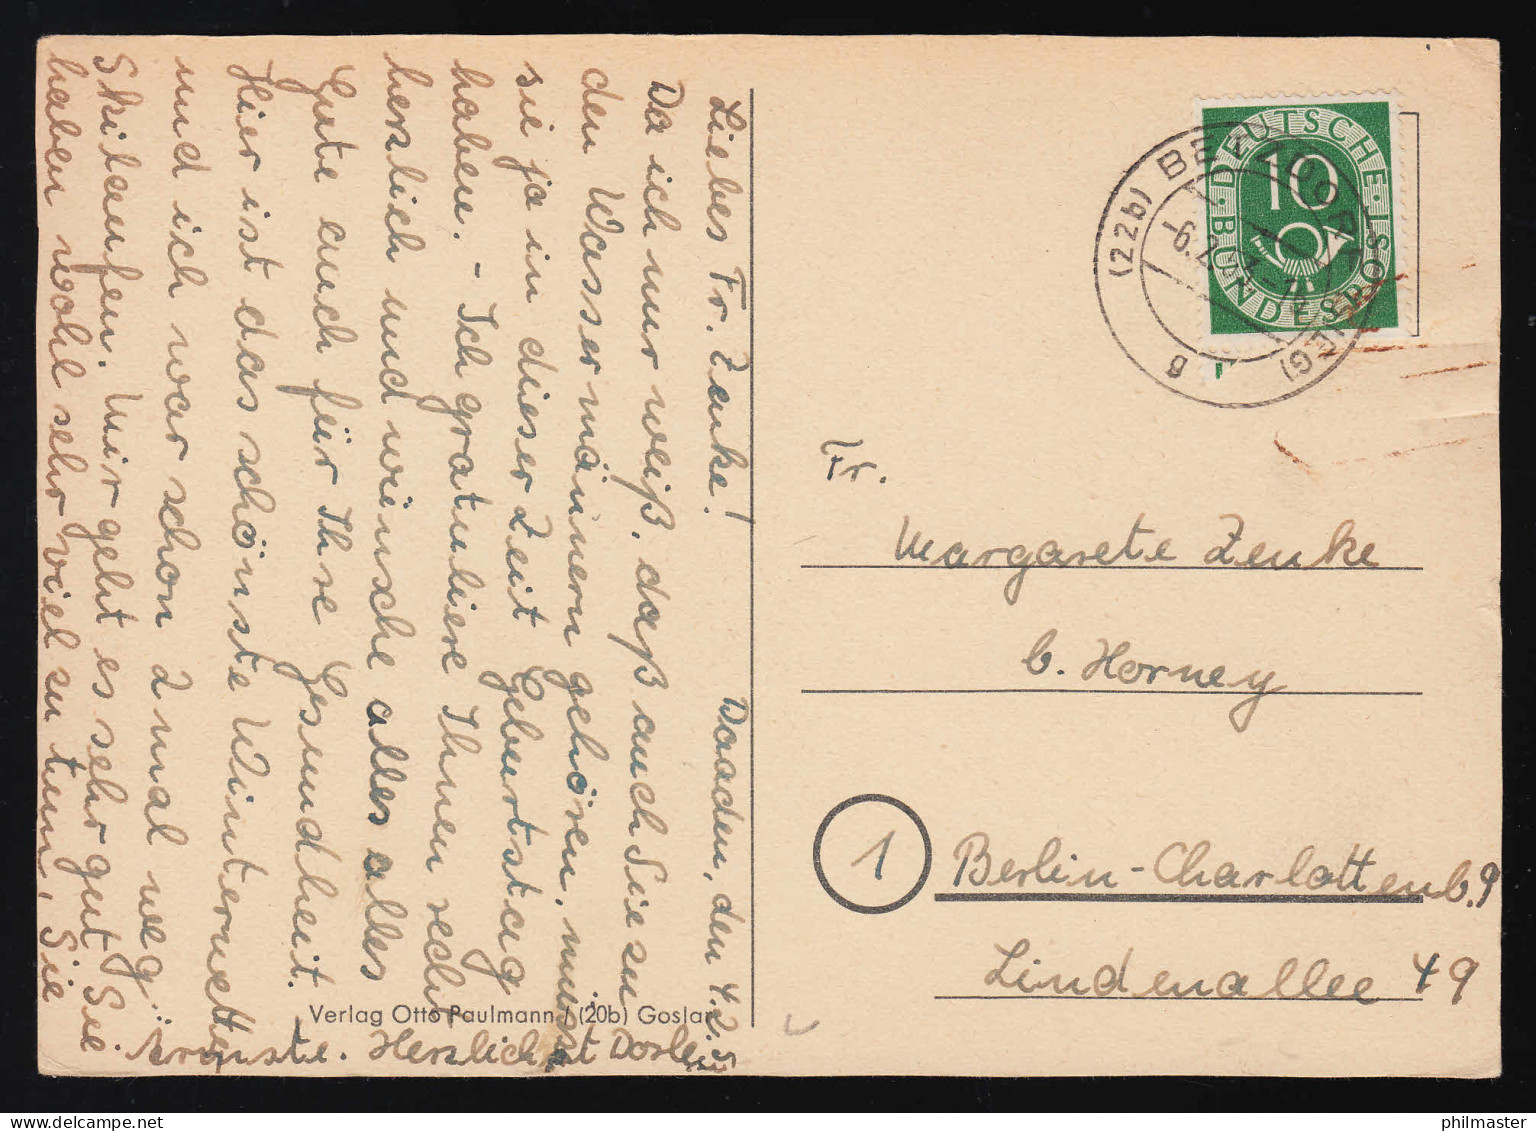 Daaden, den 4.2.
Liebes Fr. Zenke!
Da ich nur weiß, daß auch Sie zu
den Wassermännern gehören, müssen
sie ja in dieser Zeit Geburtstag
haben. - Ich gratuliere Ihnen recht
herzlich und wünsche alles alles
Gute auch für Ihre Gesundheit.
Hier ist das schönste Winterwetter
und ich war schon 2 mal weg
Skilaufen. Mir geht es sehr gut. Sie
haben wohl sehr viel zu tun, Sie
Ärmste. Herzlichst
Verlag Otto Paulmann / (20b) Goslar
DEUTSCHE BUNDESPOST
10
(22b) BETZDORF (SIEG)
-6.2.
g
Fr.
Margarete Zenke
b. Horney
1
Berlin-Charlottenb. 9
Lindenallee 49
philmaster